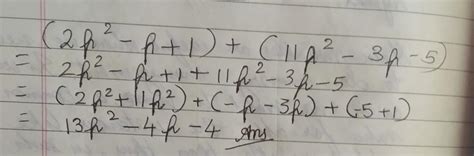 (2p² - p + 1) + (11p² - 3p - 5)
= 2p² - p + 1 + 11p² - 3p - 5
= (2p² + 11p²) + (-p - 3p) + (-5 + 1)
= 13p² - 4p - 4 Ans